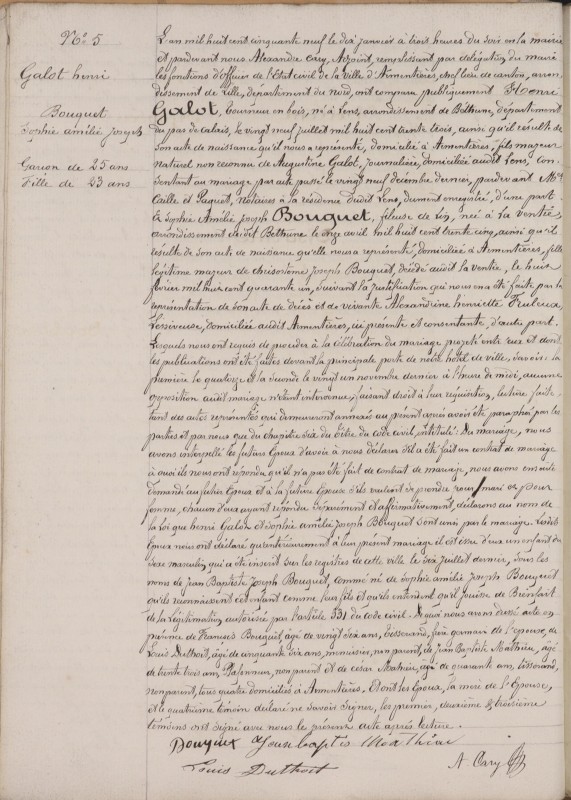 No. 5
Galot henri
Bouquet
Sophie amélie joseph
Garçon de 25 ans
Fille de 23 ans
L'an mil huit cent cinquante neuf le dix janvier à trois heures du soir en la mairie
et pardevant nous Alexandre Cary, Adjoint, remplissant par délégation du maire
les fonctions d'officier de l'Etat civil de la ville d'Armentières, chef lieu de canton, arron-
dissement de Lille, département du nord, ont comparu publiquement Henri
Galot, tourneur en bois, né à Lens, arrondissement de Béthune, département
du pas de calais, le vingt neuf juillet mil huit cent trente trois, ainsi qu'il résulte de
son acte de naissance qu'il nous a représenté, domicilié à Armentières, fils majeur
naturel non reconnu de Augustine Galot, journalière, domiciliée audit Lens, con-
sentant au mariage par acte passé le vingt neuf décembre dernier, pardevant Mes
Caille et Paquet, Notaires à la résidence dudit Lens, dument enregistré, d'une part.
Et Sophie Amélie Joseph Bouquet, fileuse de lin, née à La Ventie,
arrondissement dudit Béthune le onze avril mil huit cent trente cinq, ainsi qu'il
résulte de son acte de naissance qu'elle nous a représenté, domiciliée à Armentières, fille
légitime majeur de chrisostome Joseph Bouquet, décédé audit la Ventie, le huit
février mil huit cent quarante un, suivant la justification qui nous en a été faite par la
représentation de son acte de décès et de vivante Alexandrine henriette
Lessiveuse, domiciliée audit Armentières, ici présente et consentante, d'autre part.
Lesquels nous ont requis de procéder à la célébration du mariage projeté entr'eux et dont
les publications ont été faites devant la principale porte de notre hôtel de ville, savoir: la
première le quatorze et la seconde le vingt un novembre dernier à l'heure de midi, aucune
opposition audit mariage n'étant intervenue, faisant droit à leur réquisition, lecture faite
tant des actes représentés qui demeureront annexés au présent après avoir été paraphés par les
parties et par nous que du chapitre six du titre du code civil, intitulé: Du mariage, nous
avons interpellé les futurs Epoux d'avoir à nous déclarer s'il a été fait un contrat de mariage
à quoi ils nous ont répondu qu'il n'a pas été fait de contrat de mariage, nous avons ensuite
demandé au futur Epoux et à la future Epouse s'ils veulent se prendre pour mari et pour
femme, chacun d'eux ayant répondu séparément et affirmativement, déclarons au nom de
la Loi que henri Galot et Sophie amélie Joseph Bouquet sont unis par le mariage. Lesdits
Epoux nous ont déclaré qu'antérieurement à leur présent mariage il est issu d'eux un enfant du
sexe masculin qui a été inscrit sur les registres de cette ville le dix juillet dernier, sous les
noms de Jean Baptiste Joseph Bouquet, comme né de Sophie amélie Joseph Bouquet
qu'ils reconnaissent cet enfant comme leur fils et qu'ils entendent qu'il jouisse du Bienfait
de la légitimation autorisée par l'article 331 du code civil. De quoi nous avons dressé acte en
présence de François Bouquet, âgé de vingt six ans, tisserand, frère germain de l'epouse, de
Louis Duthoit, âgé de cinquante six ans, menuisier, non parent, de Jean Baptiste Mathieu, âgé
de trente trois ans, non parent et de césar Mathieu, âgé de quarante ans, tisserand,
non parent, tous quatre domiciliés à Armentières. Et ont les Epoux, la mère de l'Epouse,
et le quatrième témoin déclaré ne savoir signer, les premier, deuxième & troisième
témoins ont signé avec nous le présent acte après lecture.
Bouquet
Louis Duthoit
A Cary